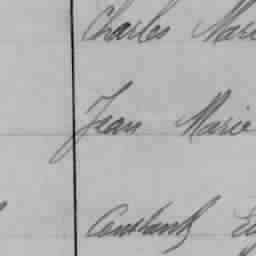 Charles Mari
Jean Marie
Constant